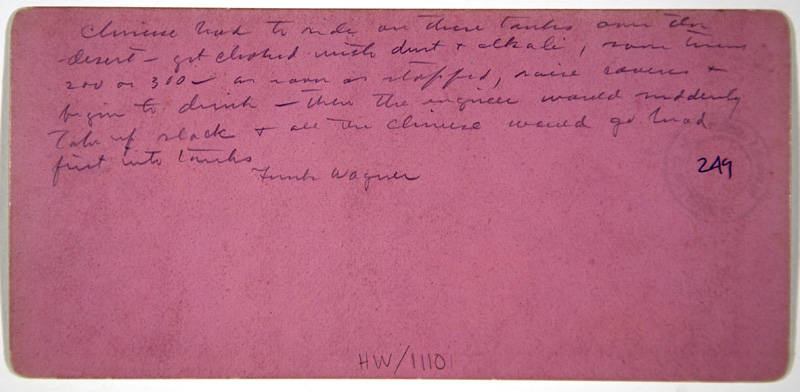 Chinese had to ride on these tanks over the
desert - get choked with dust + alkali, some times
200 or 300 - as soon as stopped, raise covers +
begin to drink - then the engineer would suddenly
take up slack + all the Chinese would go head
first into tanks
Frank Wagner
249
HW/1110